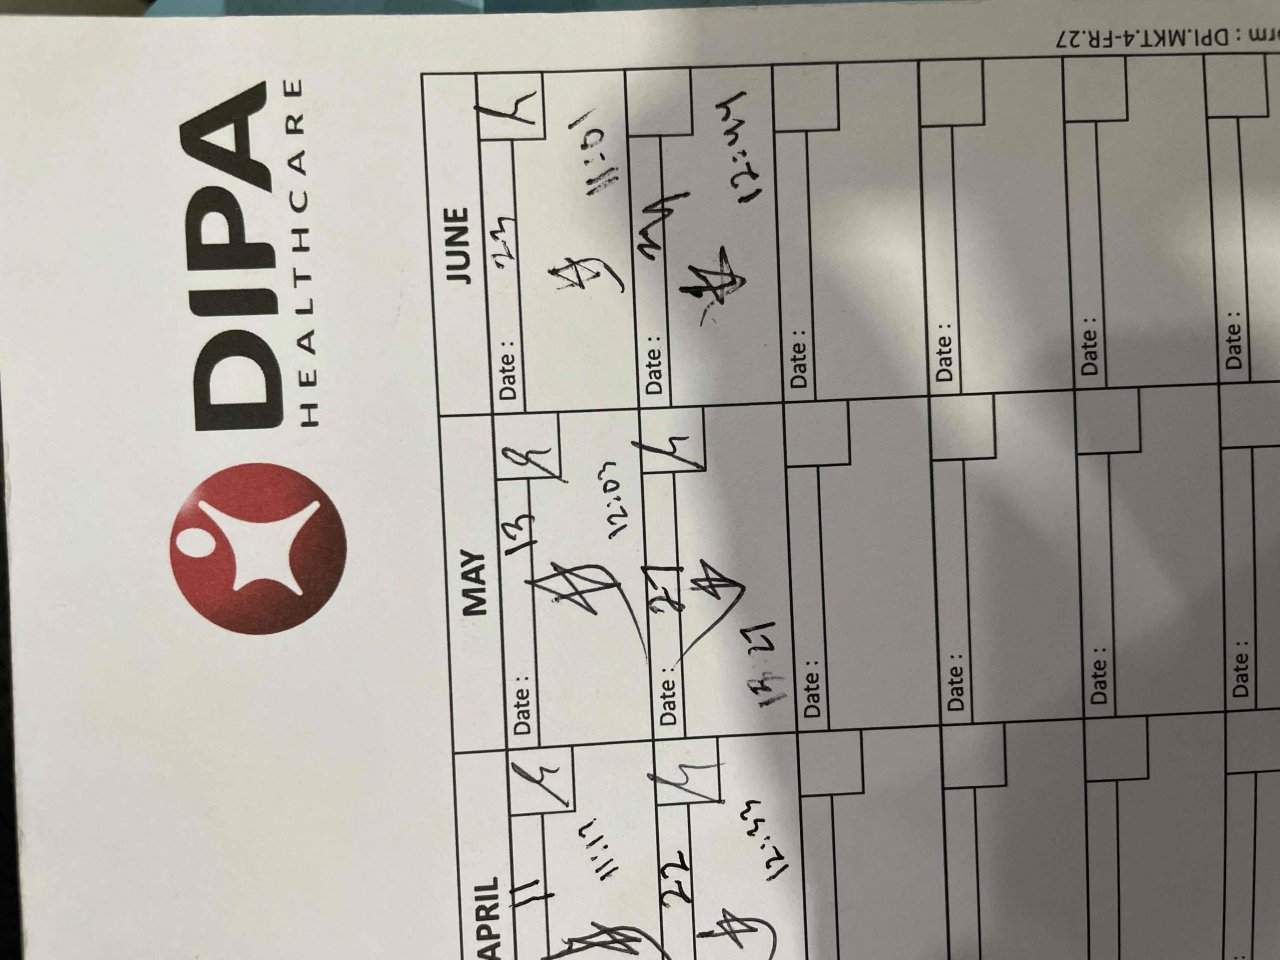 DIPA
HEALTHCARE
APRIL MAY JUNE
11 Date : 13 Date : 23
12:03 11:01
22 Date : 27 Date :
12:33 13:27 12:44
Date : Date :
Date : Date :
Date : Date :
Date : Date :
: DPI.MKT.4-FR.27